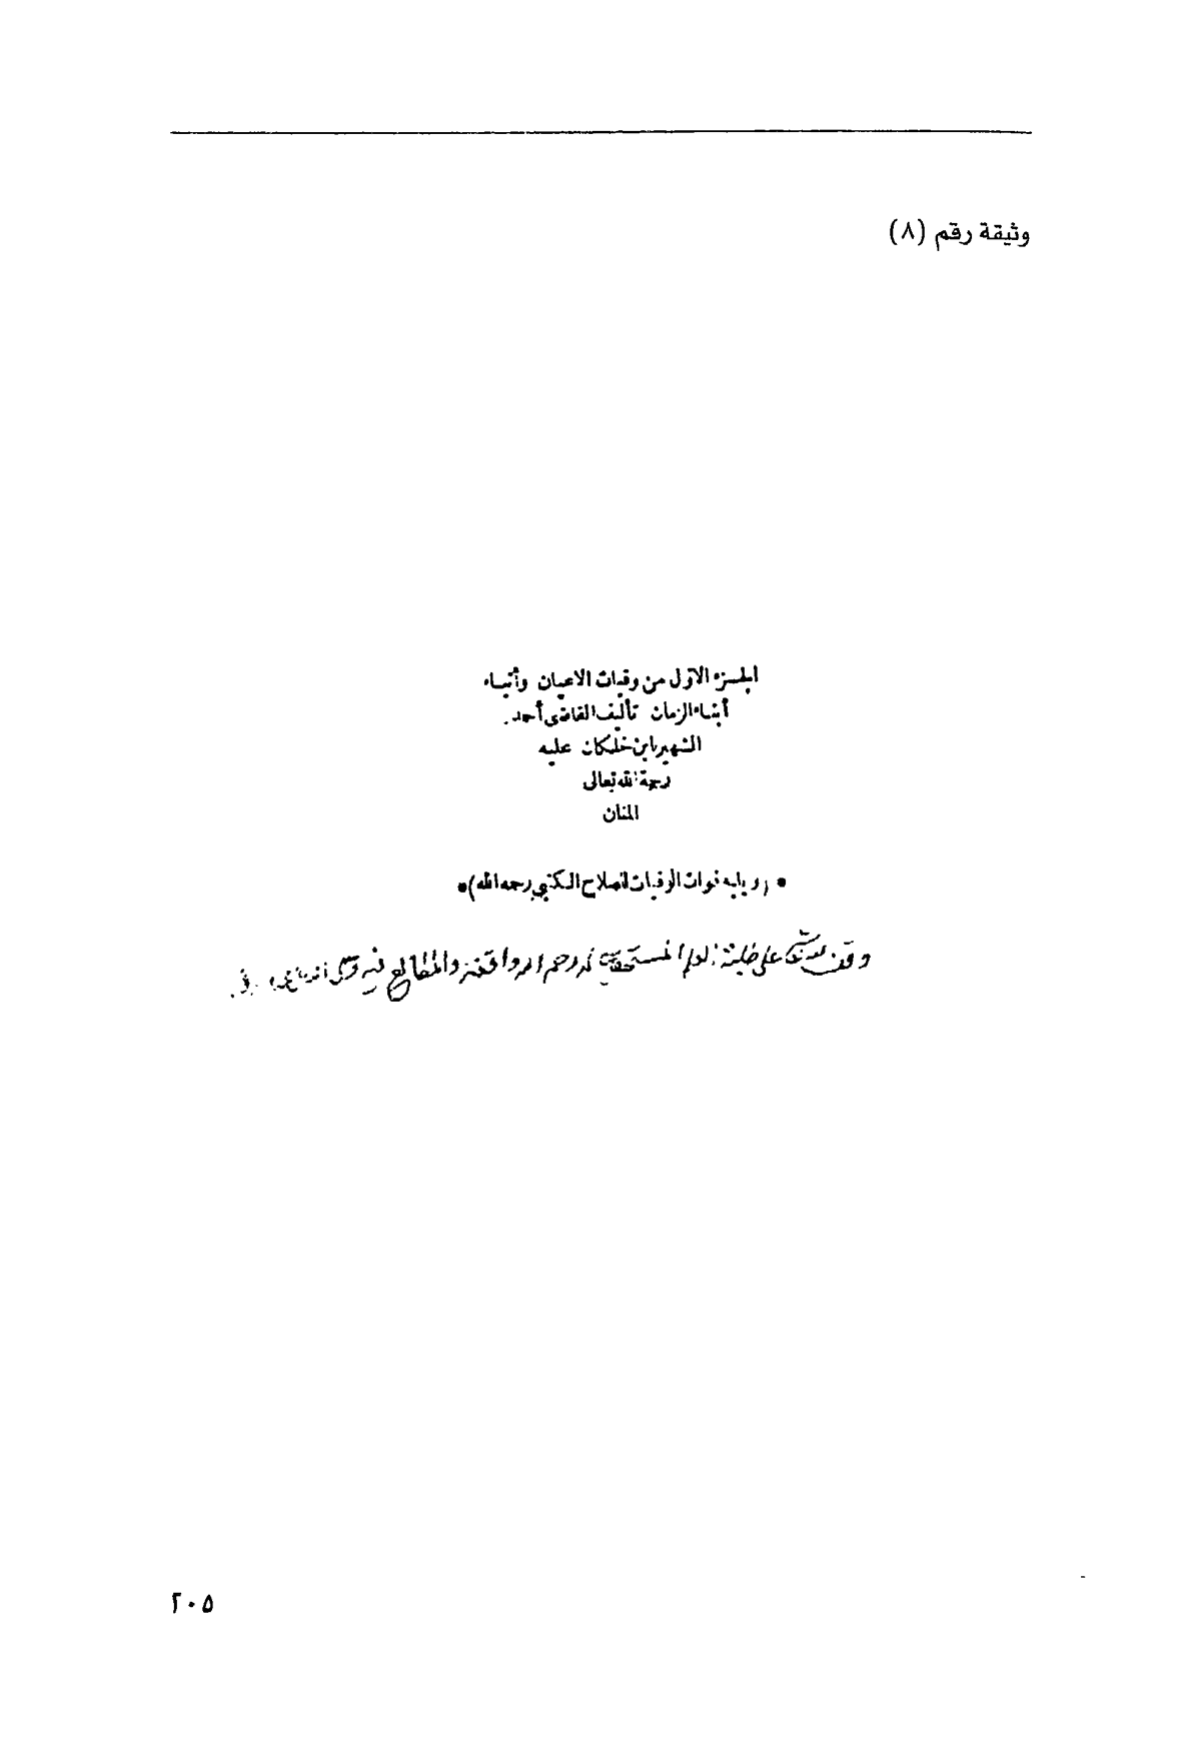 وثيقة رقم (٨)
الجزء الاول من وفيات الاعيان وأنباء
أبناء الزمان تأليف القاضى أحمد
الشهير بابن خلكان عليه
رحمة الله تعالى
المنان
(ويليه فوات الوفيات لصلاح الكتبي رحمه الله)
وقف لله تعالى على طلبة العلم المستحقين له رحم الله واقفه والمطالع فيه
٢٠٥